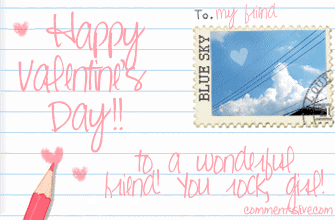 To: my friend
Happy
Valentine's
Day!!
BLUE SKY
to a wonderful
friend! You rock, girl!
commentslive.com